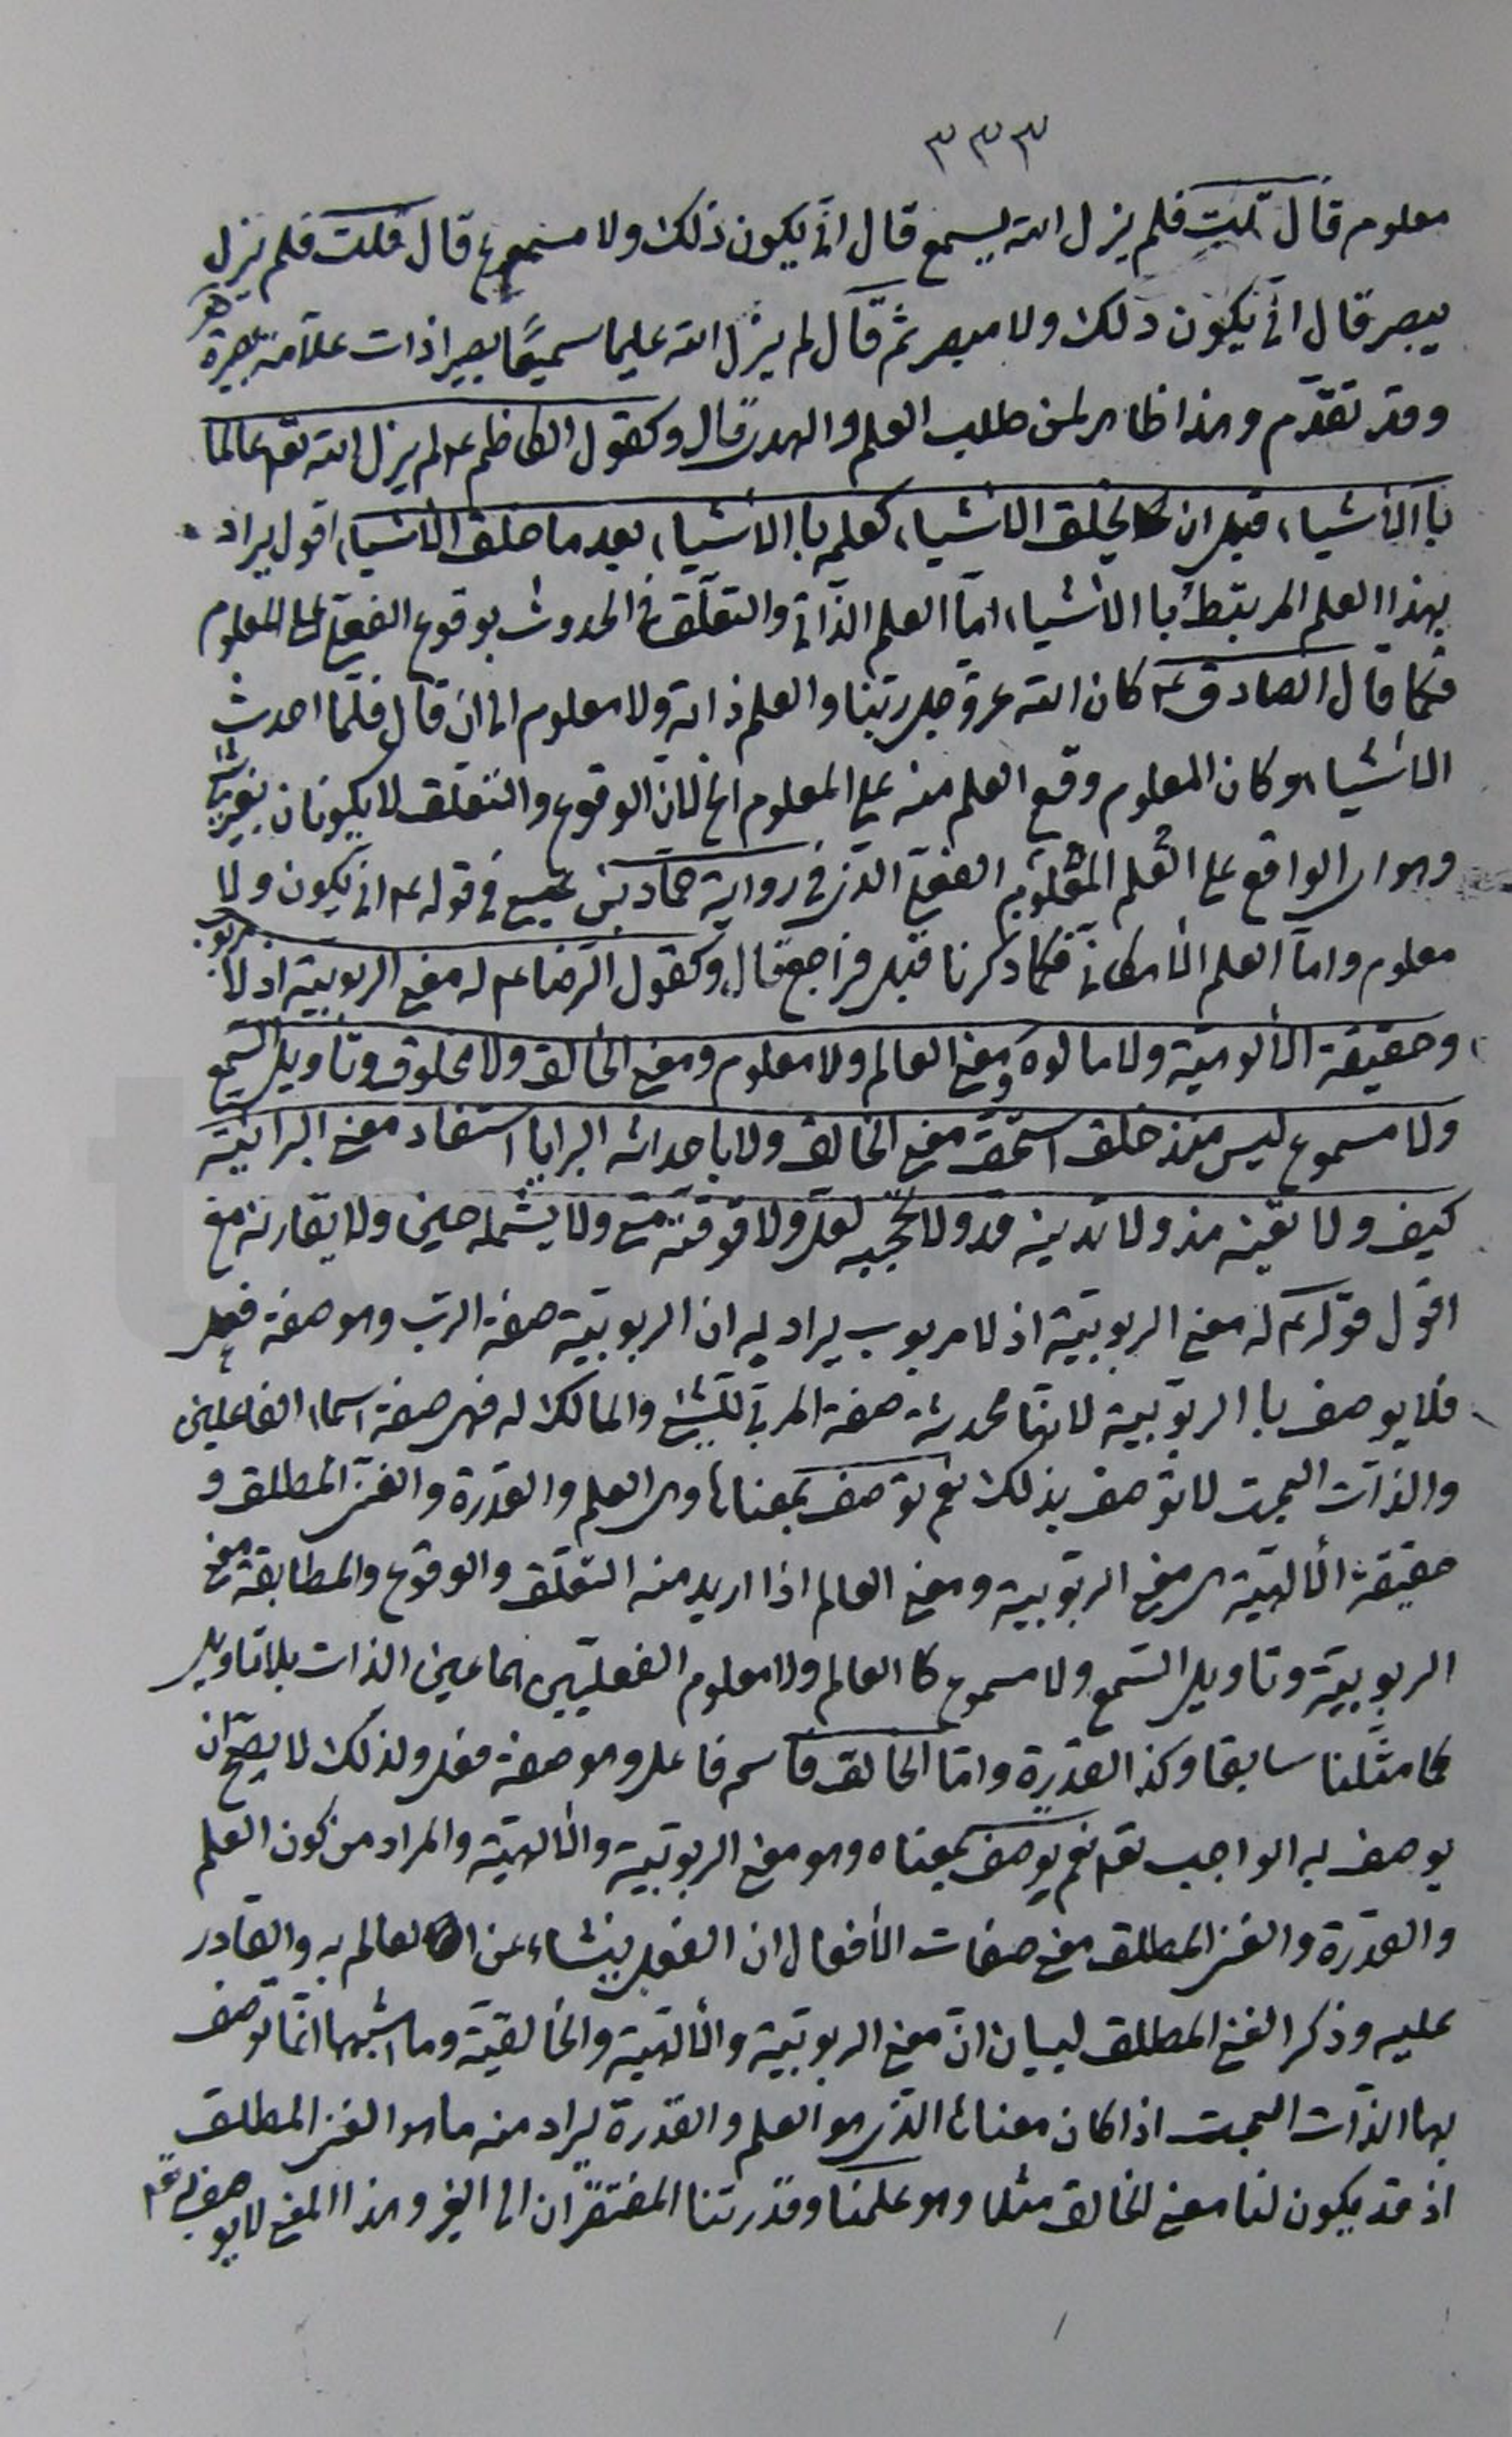 ٣٣٣
معلوم قال قلت فلم يزل الله يسمع قال انّى يكون ذلك ولا مسموع قال قلت فلم يزل
يبصر قال انّى يكون ذلك ولا مبصر ثمّ قال لم يزل الله عليما سميعًا بصيرا ذات علّامة بصيرة
وقد تقدّم وهذا ظاهر لمن طلب العلم والهدى قال وكقول الكاظم ع لم يزل الله تعالى عالما
باالأشياء قبل ان يخلق الأشياء كعلمه باالاشياء بعد ما خلق الأشياء اقول يراد
بهذا العلم المرتبط باالأشياء امّا العلم الذّاتي والتعلّق في الحدوث بوقوع الفعلي على المعلوم
فكما قال الصادق ع كان الله عزّ وجلّ ربّنا والعلم ذاته ولا معلوم الى ان قال فلمّا احدث
الأشياء وكان المعلوم وقع العلم منه على المعلوم الخ لأنّ الوقوع والتعلّق لا يكونان بغير شيء
وهو اى الواقع على العلم المعلوم الفعلي الذى في رواية حمّاد بن عيسى في قوله ع انّى يكون ولا
معلوم وامّا العلم الأمكاني فكما ذكرنا قبل فراجع قال وكقول الرّضا ع له معنى الربوبيّة اذ لا مربوب
وحقيقة الألوهيّة ولا مالوه ومعنى العالم ولا معلوم ومعنى الخالق ولا مخلوق وتأويل السّمع
ولا مسموع ليس منذ خلق استحقّ معنى الخالق ولا باحداثه البرايا استفاد معنى البرائيّة
كيف ولا تغيّبه مذ ولا تدنيه قد ولا تحجبه لعلّ ولا توقّته متى ولا يشمله حين ولا يقارنه مع
اقول قوله ع له معنى الربوبيّة اذ لا مربوب يراد به ان الربوبيّة صفة الربّ وهو صفة فعل
فلا يوصف باالربوبيّة لانّها محدثة صفة المربّي للشّيء والمالك له فهى صفة اسماء الفاعلين
والذّات البحت لا توصف بذلك نعم توصف بمعناها وهى العلم والقدرة والغنى المطلق و
حقيقة الألهيّة هى معنى الربوبيّة ومعنى العالم اذا اريد منه التعلّق والوقوع والمطابقة معنى
الربوبيّة وتاويل السّمع ولا مسموع كاالعالم ولا معلوم الفعليّين هما عين الذات بلا تاويل
كما مثّلنا سابقا وكذا القدرة وامّا الخالق فاسم فاعل وهو صفة فعل ولذلك لا يصحّ ان
يوصف به الواجب تعالى نعم يوصف بمعناه وهو معنى الربوبيّة والألهيّة والمراد من كون العلم
والقدرة والغنى المطلق معنى صفات الأفعال ان الفعل ينشاء عن العالم به والقادر
عليه وذكر الغنى المطلق لبيان انّ معنى الربوبيّة والألهيّة والخالقيّة وما اشبهها انّما توصف
بها الذّات البحت اذا كان معناها الذى هو العلم والقدرة يراد منه ما هو الغنى المطلق
اذ قد يكون لنا معنى الخالق مثلا وهو علمنا وقدرتنا المفتقران الى الغير وهذا المعنى لا يوصف به